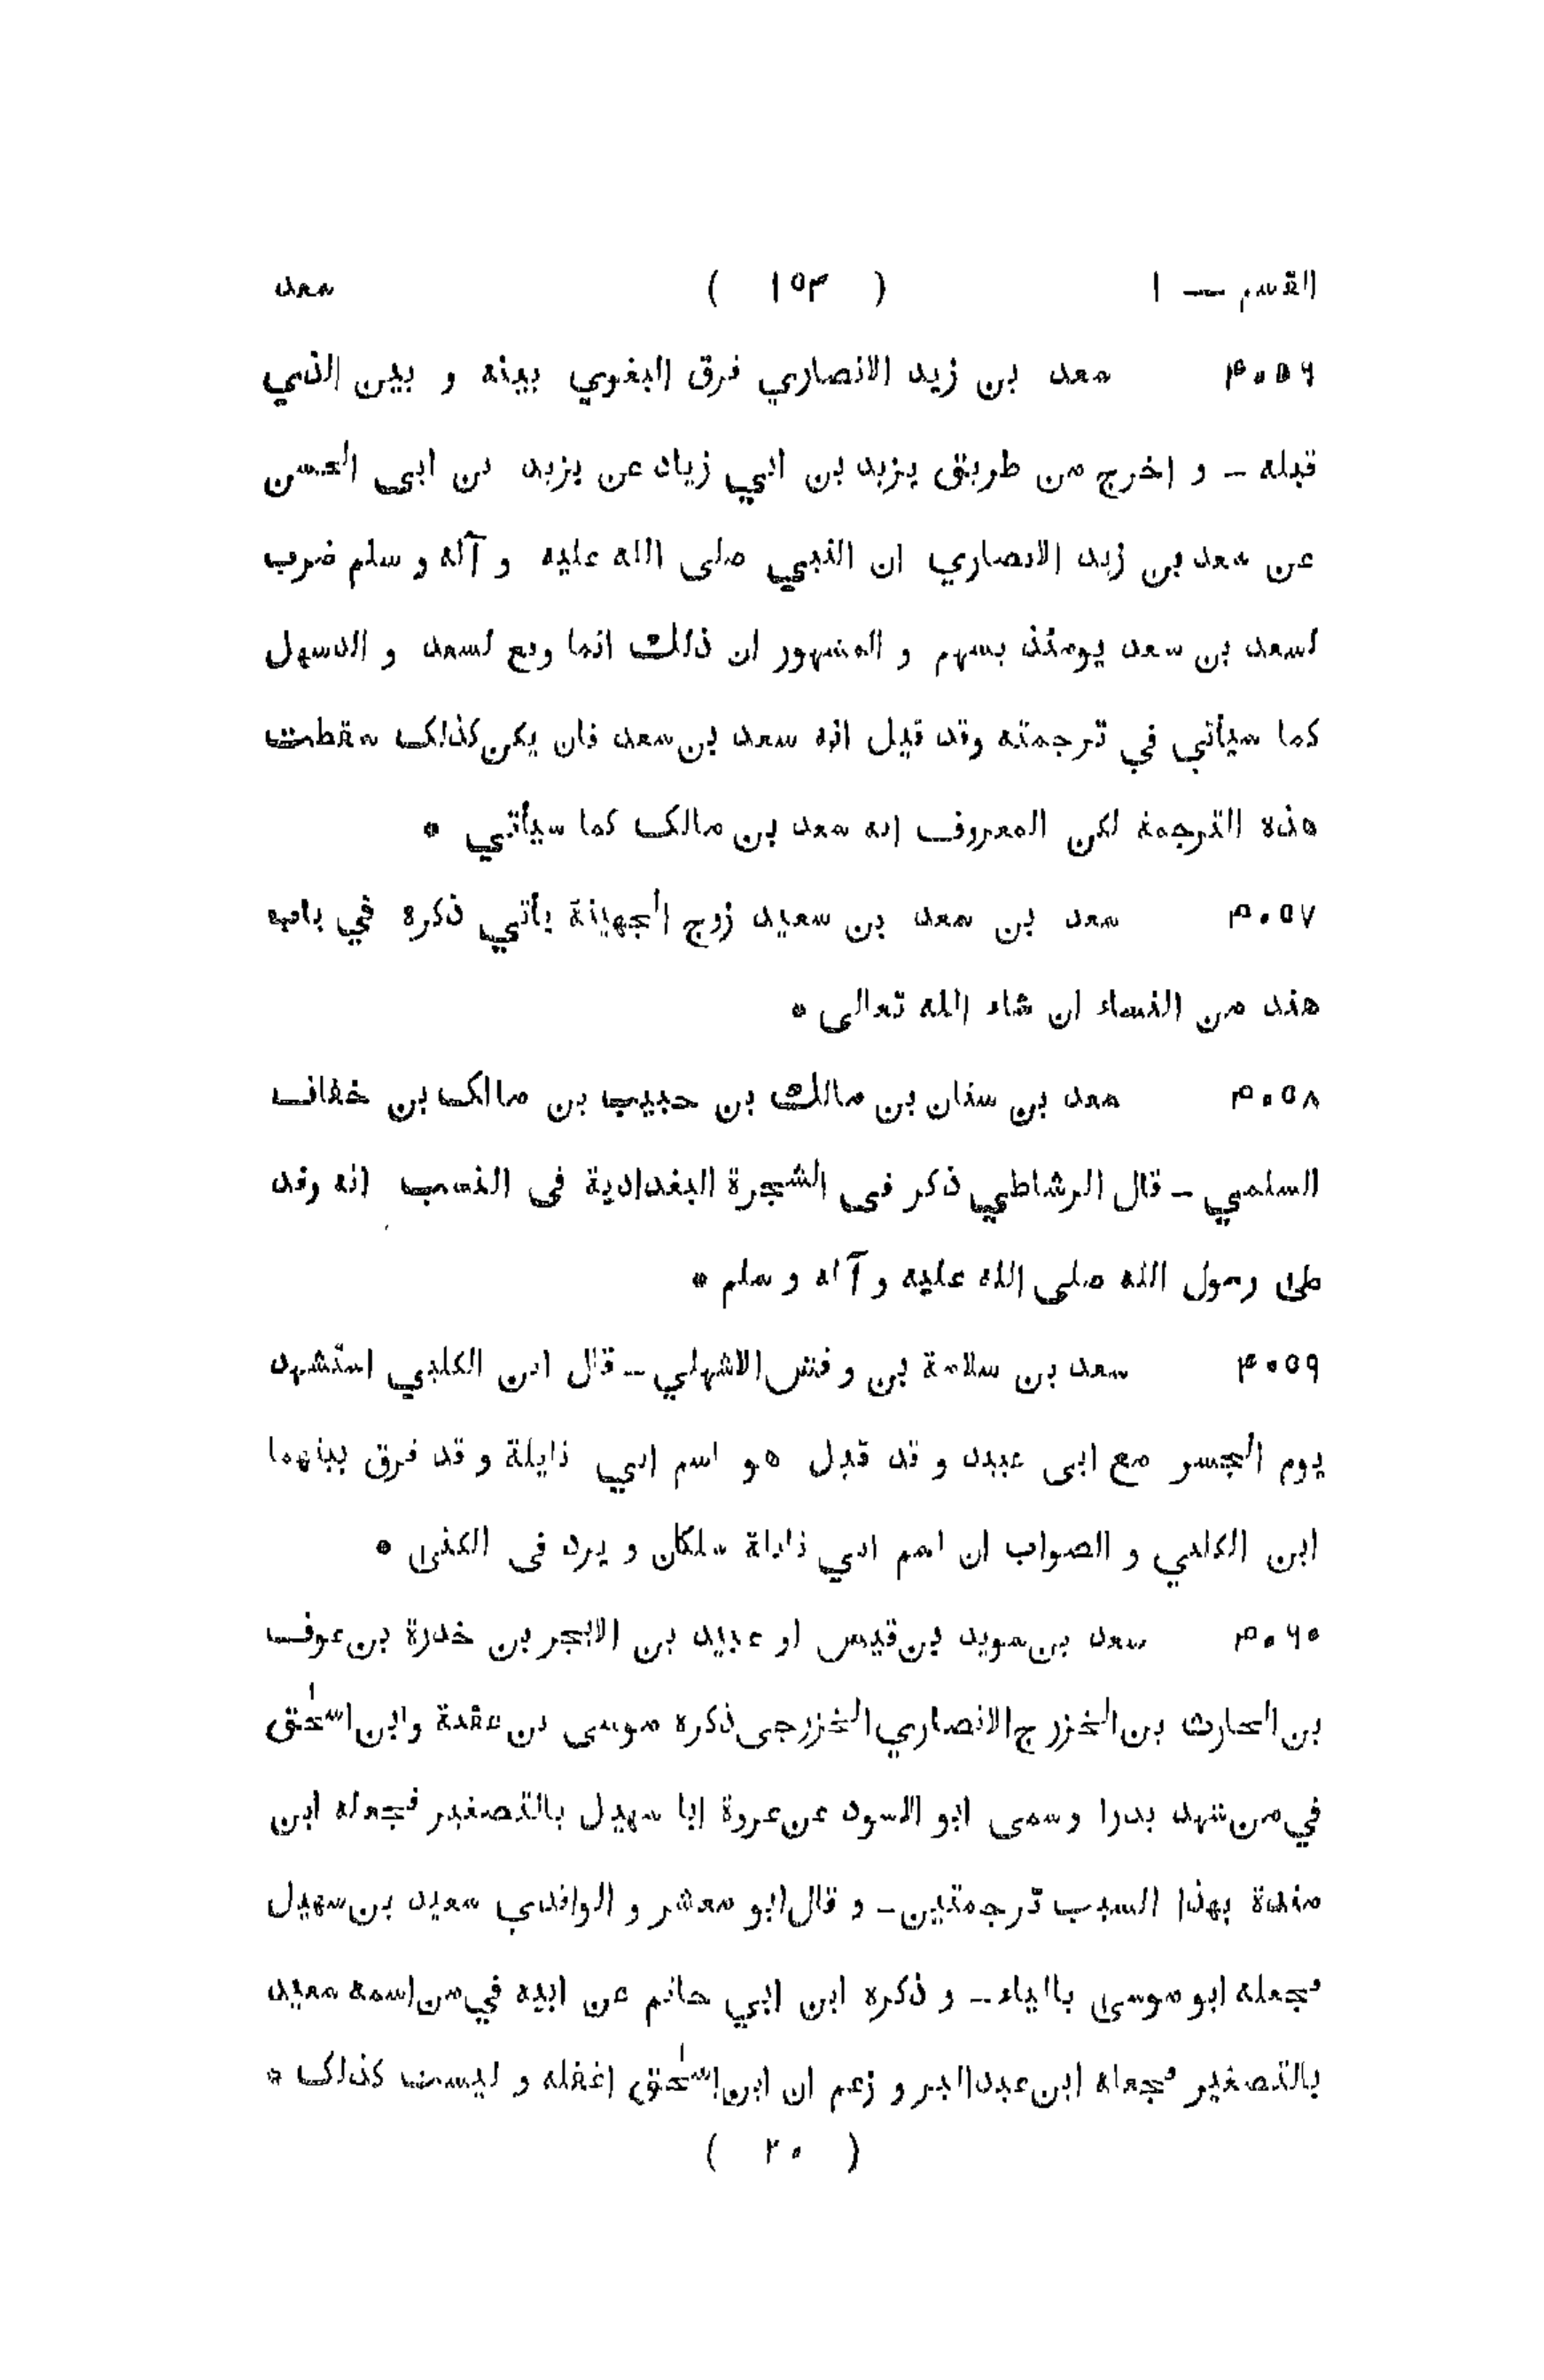 القسم — ١ ( ١٥٣ ) سعد
٤٠٥٦ سعد بن زيد الانصاري فرق البغوي بينه و بين الذي
قبله - و اخرج من طريق يزيد بن ابي زياد عن يزيد بن ابى الحسن
عن سعد بن زيد الانصاري ان النبي صلى الله عليه و آله و سلم ضرب
لسعد بن سعد يومئذ بسهم و المشهور ان ذلك انما وقع لسعد و السهل
كما سيأتي في ترجمته وقد قيل انه سعد بن سعد فان يكن كذلك سقطت
هذه الترجمة لكن المعروف انه سعد بن مالك كما سيأتي *
٤٠٥٧ سعد بن سعد بن سعيد زوج الجهينة يأتي ذكره في باب
هند من النساء ان شاء الله تعالى *
٤٠٥٨ سعد بن سنان بن مالك بن حبيب بن مالك بن خفاف
السلمي - قال الرشاطي ذكر فى الشجرة البغدادية فى النسب انه وفد
على رسول الله صلى الله عليه و آله و سلم *
٤٠٥٩ سعد بن سلامة بن وقش الاشهلي - قال ابن الكلبي استشهد
يوم الجسر مع ابى عبيد و قد قيل هو اسم ابي نايلة و قد فرق بينهما
ابن الكلبي و الصواب ان اسم ابي نايلة سلكان و يرد فى الكنى *
٤٠٦٠ سعد بن سويد بن قيس او عبيد بن الابجر بن خدرة بن عوف
بن الحارث بن الخزرج الانصاري الخزرجى ذكره موسى بن عقبة وابن اسحٰق
في من شهد بدرا وسمى ابو الاسود عن عروة ابا سهيل بالتصغير فجعله ابن
مندة بهذا السبب ترجمتين - و قال ابو معشر و الواقدي سعيد بن سهيل
فجعله ابو موسى بالياء - و ذكره ابن ابي حاتم عن ابيه في من اسمه سعيد
بالتصغير فجعله ابن عبد البر و زعم ان ابن اسحٰق اغفله و ليست كذلك *
( ٢٠ )